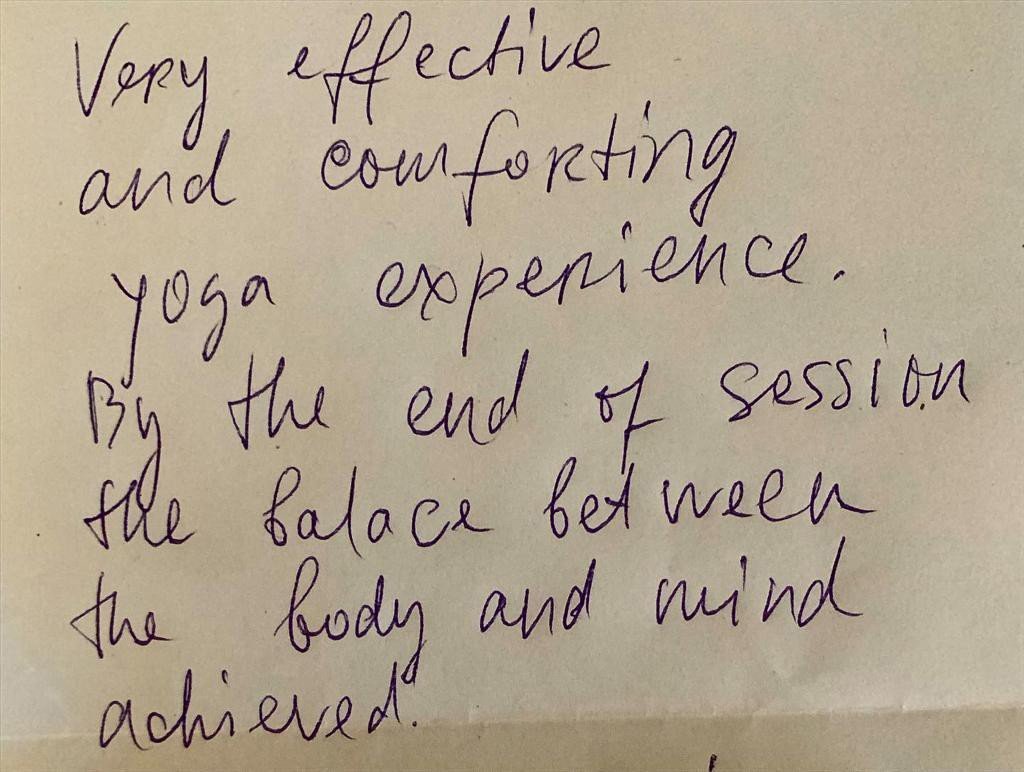 Very effective
and comforting
yoga experience.
By the end of session
the balace between
the body and mind
achieved.